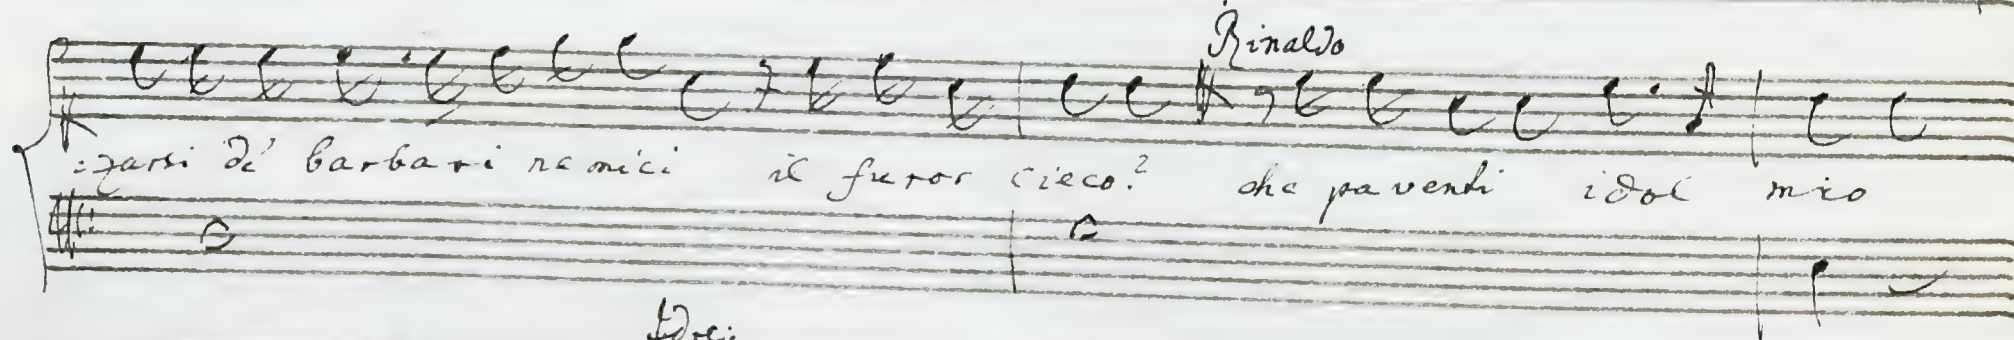 Rinaldo
:zarsi de' barbari nemici il furor cieco? che paventi idol mio